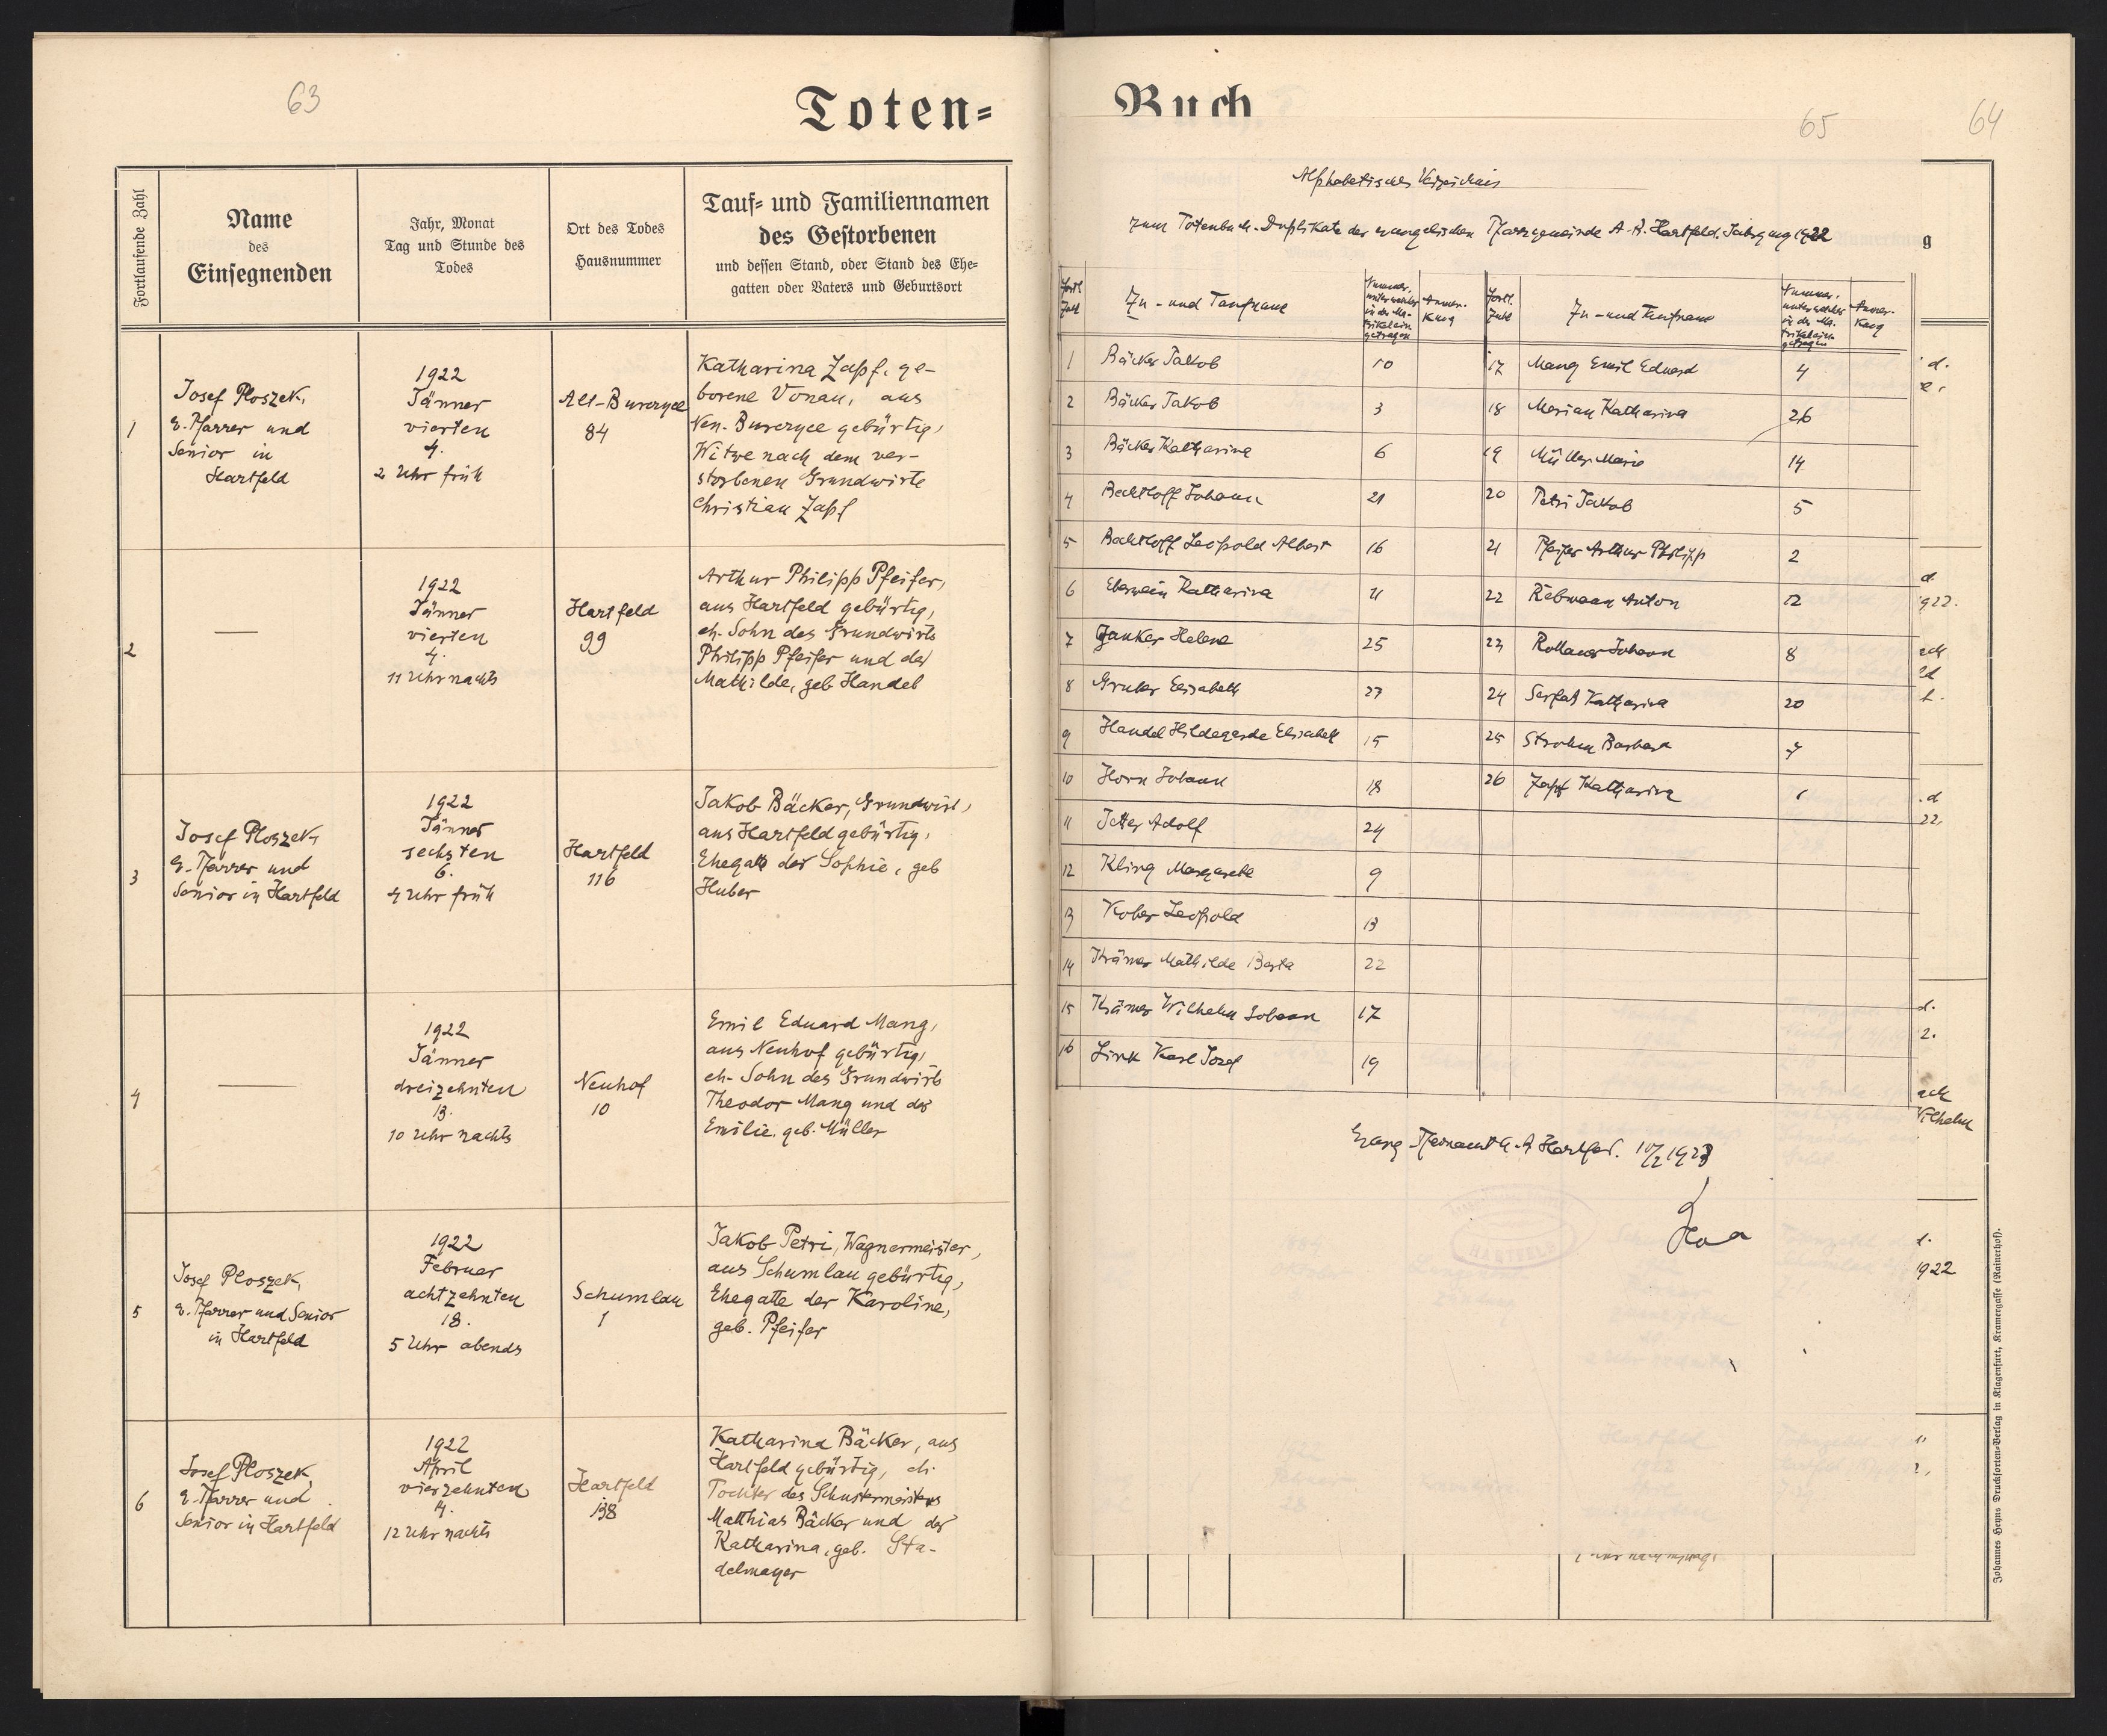 63
Toten=
Fortlaufende Zahl
Name
des
Einsegnenden
Jahr, Monat
Tag und Stunde des
Todes
Ort des Todes
Hausnummer
Tauf= und Familiennamen
des Gestorbenen
und dessen Stand, oder Stand des Ehe=
gatten oder Vaters und Geburtsort
1
Josef Ploszek,
e. Pfarrer und
Senior in
Hartfeld
1922
Jänner
vierten
4.
2 Uhr früh
Alt-Burczyce
84
Katharina Zapf, ge-
borene Vonau, aus
Neu-Burczyce gebürtig,
Witwe nach dem ver-
storbenen Grundwirte
Christian Zapf
2
—
1922
Jänner
vierten
4.
11 Uhr nachts
Hartfeld
99
Arthur Philipp Pfeifer,
aus Hartfeld gebürtig,
eh. Sohn des Grundwirts
Philipp Pfeifer und der
Mathilde, geb Handel
3
Josef Ploszek,
e. Pfarrer und
Senior in Hartfeld
1922
Jänner
sechsten
6.
4 Uhr früh
Hartfeld
116
Jakob Bäcker, Grundwirt,
aus Hartfeld gebürtig,
Ehegatte der Sophie, geb
Huber
4
—
1922
Jänner
dreizehnten
13.
10 Uhr nachts
Neuhof
10
Emil Eduard Mang,
aus Neuhof gebürtig,
eh. Sohn des Grundwirts
Theodor Mang und der
Emilie, geb. Müller
5
Josef Ploszek,
e. Pfarrer und Senior
in Hartfeld
1922
Februar
achtzehnten
18.
5 Uhr abends
Schumlau
1
Jakob Petri, Wagnermeister,
aus Schumlau gebürtig,
Ehegatte der Karoline,
geb. Pfeifer
6
Josef Ploszek,
e. Pfarrer und
Senior in Hartfeld
1922
April
vierzehnten
14.
12 Uhr nachts
Hartfeld
138
Katharina Bäcker, aus
Hartfeld gebürtig, eh.
Tochter des Schustermeisters
Matthias Bäcker und der
Katharina, geb. Sta-
delmayer
Buch
65
64
Alphabetisches Verzeichnis
zum Totenbuch-Duplikate der evangelischen Pfarrgemeinde A. B. Hartfeld. Jahrgang 1922
g
Fortl. Zahl
Zu- und Taufname
Nummer, unter welcher in der Matrik eingetragen
Anmerkung
Fortl. Zahl
Zu- und Taufname
Nummer, unter welcher in der Matrik eingetragen
Anmerkung
1 Bäcker Jakob 10
2 Bäcker Jakob 3
3 Bäcker Katharina 6
4 Bechtloff Johann 21
5 Bechtloff Leopold Albert 16
6 Eberwein Katharina 11
7 Ganker Helene 25
8 Gruber Elisabeth 23
9 Handel Hildegarde Elisabeth 15
10 Horn Johann 18
11 Jetter Adolf 24
12 Kling Margarete 9
13 Kober Leopold 13
14 Krämer Mathilde Berta 22
15 Krämer Wilhelm Johann 17
16 Link Karl Josef 19
17 Mang Emil Eduard 4
18 Merian Katharina 26
19 Müller Marie 14
20 Petri Jakob 5
21 Pfeifer Arthur Philipp 2
22 Rebmann Anton 12
23 Johann 8
24 Katharina 20
25 Strohm Barbara 7
26 Zapf Katharina 1
Evang Pfarramt A. B Hartfeld. 10/2 1923
d.
d.
922.
.d
22.
d.
2.
Wilhelm
1922
Johannes Heyns Drucksorten-Verlag in Klagenfurt, Kramergasse (Rainerhof).